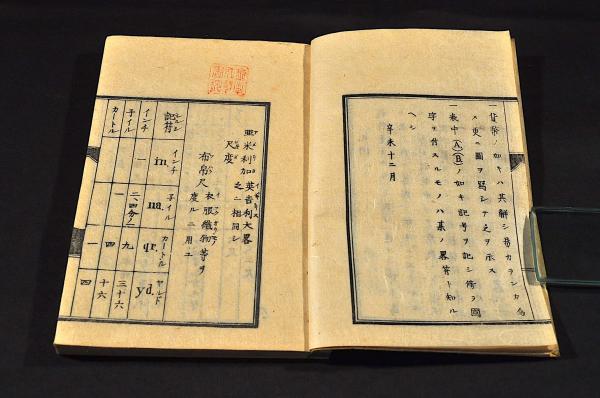 一 貨幣ノ如キハ其解シ易カランカ為
メ更ニ圖ヲ寫シテ之ヲ示ス
一 表中ⒶⒷノ如キ記号ヲ記シ傍ヲ國
字ヲ付スルモノハ某ノ畧符ト知ル
ヘシ
辛未十二月
亜米利加英吉利大畧
尺度 之ニ相同シ
布帛尺 衣服織物等ヲ
度ルニ用ユ
記符 インチ 子イル カートル
インチ in. 一
子イル na. 二、四分ノ一 一
カートル qr. 九 四 一
ヤールド yd. 三十六 十六 四